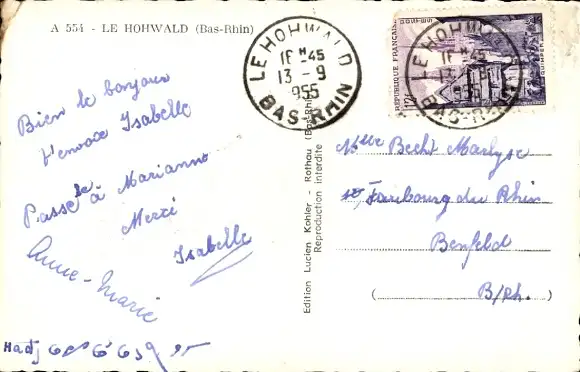 A 554 - LE HOHWALD (Bas-Rhin)
Bien le bonjour
t'envoie Isabelle
Passe le à Marianne
Merci
Isabelle
Anne-Marie
LE HOHWALD
16 H 45
13 - 9
1955
BAS-RHIN
RÉPUBLIQUE FRANÇAISE
POSTES
QUIMPER
LE HOHWALD
16 H 45
13 - 9
1955
BAS-RHIN
Edition Lucien Kohler - Rothau (Bas-Rhin)
Reproduction interdite
Melle Becht Marlyse
Faubourg du Rhin
Benfeld
(B/Rh.)